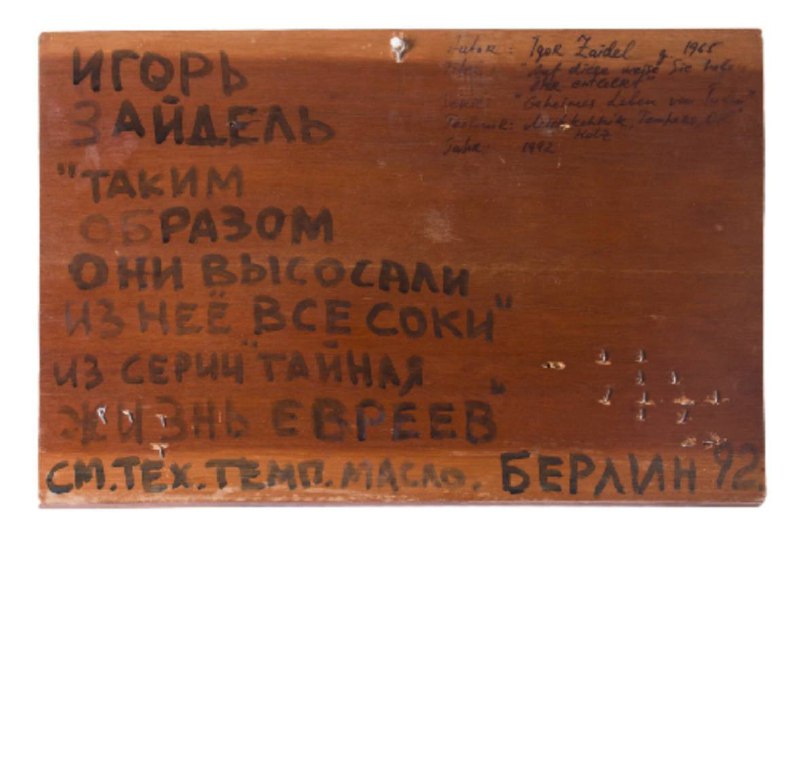 ИГОРЬ
ЗАЙДЕЛЬ
"ТАКИМ
ОБРАЗОМ
ОНИ ВЫСОСАЛИ
ИЗ НЕЁ ВСЕ СОКИ"
ИЗ СЕРИИ "ТАЙНАЯ
ЖИЗНЬ ЕВРЕЕВ"
СМ. ТЕХ. ТЕМП. МАСЛО. БЕРЛИН 92.
Autor: Igor Zaidel g. 1965
"Auf diese weise Sie
Ihr entleert"
"Geheimes Leben von
Technik: Tempera
Holz
Jahr: 1992